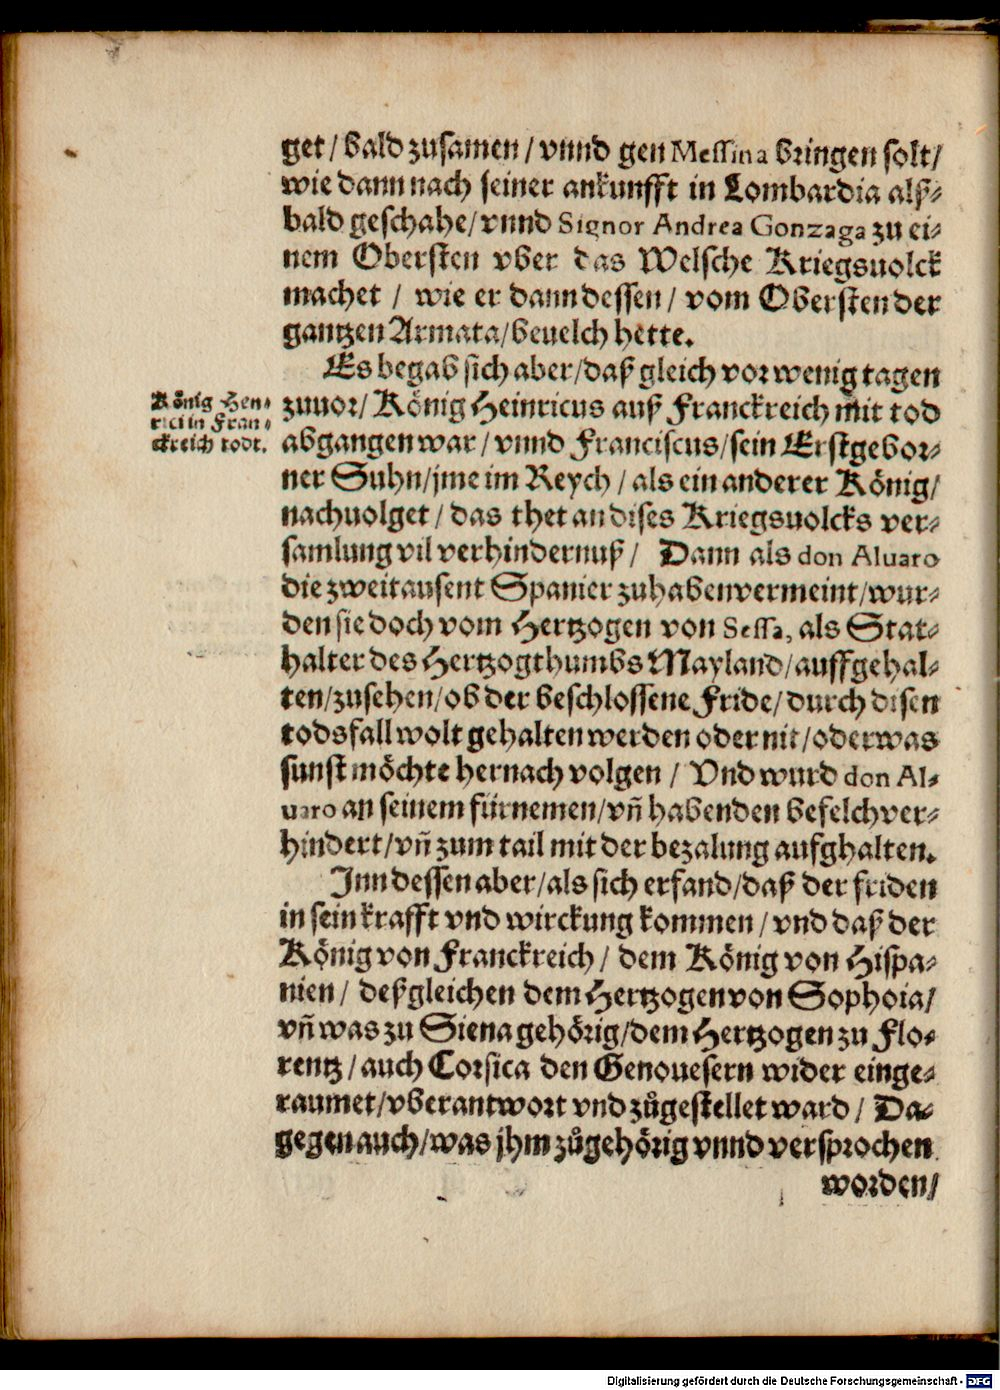 get / bald zusamen / vnnd gen Messina bringen solt /
wie dann nach seiner ankunfft in Lombardia alß⸗
bald geschahe / vnnd Signor Andrea Gonzaga zu ei⸗
nem Obersten vber das Welsche Kriegsuolck
machet / wie er dann dessen / vom Obersten der
gantzen Armata / beuelch hette.
Es begab sich aber / daß gleich vor wenig tagen
zuuor / König Heinricus auß Franckreich mit tod
abgangen war / vnnd Franciscus / sein Erstgebor⸗
ner Suhn / jme im Reych / als ein anderer König /
nachuolget / das thet an dises Kriegsuolcks ver⸗
samlung vil verhindernuß / Dann als don Aluaro
die zweitausent Spanier zuhaben vermeint / wur⸗
den sie doch vom Hertzogen von Sessa, als Stat⸗
halter des Hertzogthumbs Mayland / auffgehal⸗
ten / zusehen / ob der beschlossene Fride / durch disen
todsfall wolt gehalten werden oder nit / oder was
sunst möchte hernach volgen / Vnd wurd don Al⸗
uaro an seinem fürnemen / vñ habenden befelch ver⸗
hindert / vñ zum tail mit der bezalung aufghalten.
Inn dessen aber / als sich erfand / daß der friden
in sein krafft vnd wirckung kommen / vnd daß der
König von Franckreich / dem König von Hispa⸗
nien / deßgleichen dem Hertzogen von Sophoia /
vñ was zu Siena gehörig / dem Hertzogen zu Flo⸗
rentz / auch Corsica den Genouesern wider einge⸗
raumet / vberantwort vnd zůgestellet ward / Da⸗
gegen auch / was jhm zůgehörig vnnd versprochen
worden /
König Hen⸗
rici in Fran⸗
ckreich todt.
Digitalisierung gefördert durch die Deutsche Forschungsgemeinschaft - DFG